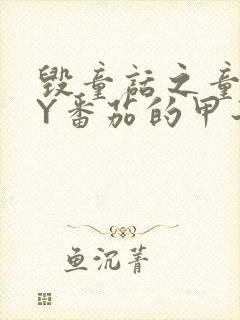 毁童话之童
Y番茄的甲
鱼沉菁